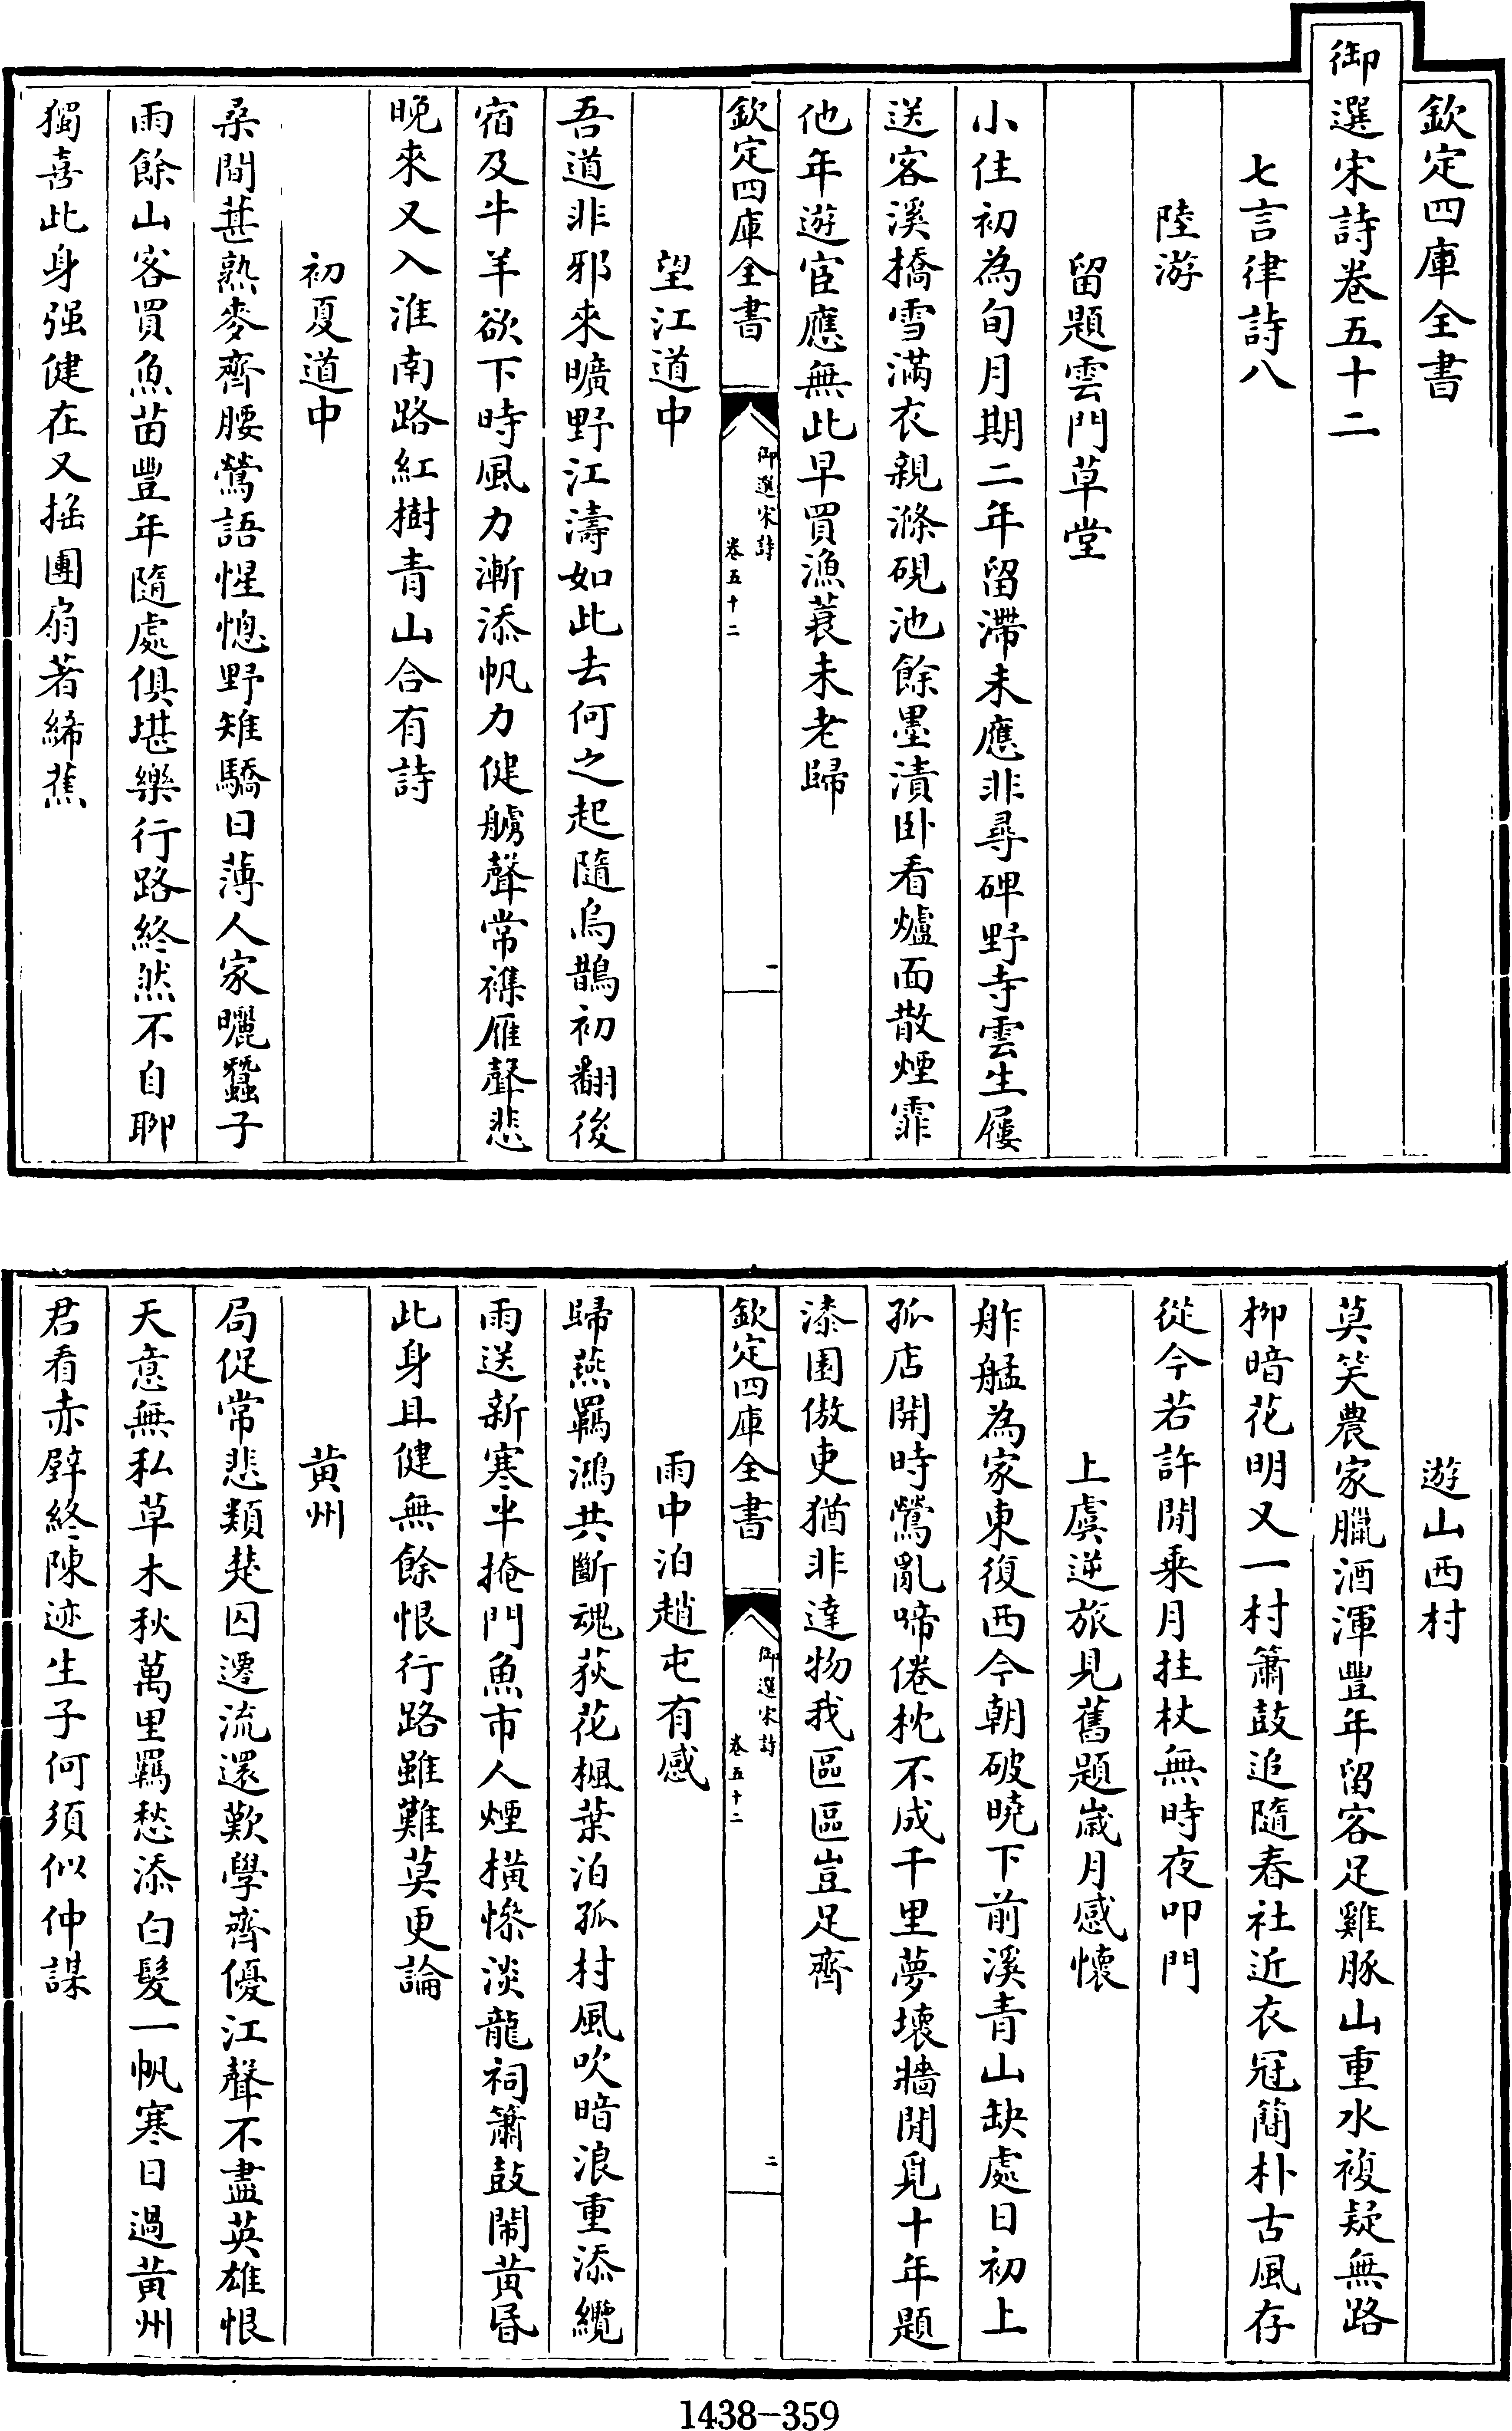 欽定四庫全書
御選宋詩卷五十二
七言律詩八
陸游
留題雲門草堂
小住初為旬月期二年留滯未應非尋碑野寺雲生屨
送客溪橋雪滿衣親滌硯池餘墨漬卧看爐面散煙霏
他年遊宦應無此早買漁蓑未老歸
欽定四庫全書
御選宋詩
卷五十二
一
望江道中
吾道非邪來曠野江濤如此去何之起隨烏鵲初翻後
宿及牛羊欲下時風力漸添帆力健艣聲常襍雁聲悲
晚來又入淮南路紅樹青山合有詩
初夏道中
桑間葚熟麥齊腰鶯語惺憁野雉驕日薄人家曬蠶子
雨餘山客買魚苗豐年隨處俱堪樂行路終然不自聊
獨喜此身强健在又揺團扇著絺蕉
遊山西村
莫笑農家臘酒渾豐年留客足雞豚山重水複疑無路
柳暗花明又一村簫鼓追隨春社近衣冠簡朴古風存
從今若許閒乗月拄杖無時夜叩門
上虞逆旅見舊題歲月感懷
舴艋為家東復西今朝破曉下前溪青山缺處日初上
孤店開時鶯亂啼倦枕不成千里夢壞牆閒覓十年題
漆園傲吏猶非達物我區區豈足齊
欽定四庫全書
御選宋詩
卷五十二
二
雨中泊趙屯有感
歸燕羈鴻共斷魂荻花楓葉泊孤村風吹暗浪重添纜
雨送新寒半掩門魚市人煙橫慘淡龍祠簫鼓鬧黃昬
此身且健無餘恨行路雖難莫更論
黃州
局促常悲類楚囚遷流還歎學齊優江聲不盡英雄恨
天意無私草木秋萬里羈愁添白髮一帆寒日過黃州
君看赤壁終陳迹生子何須似仲謀
1438-359